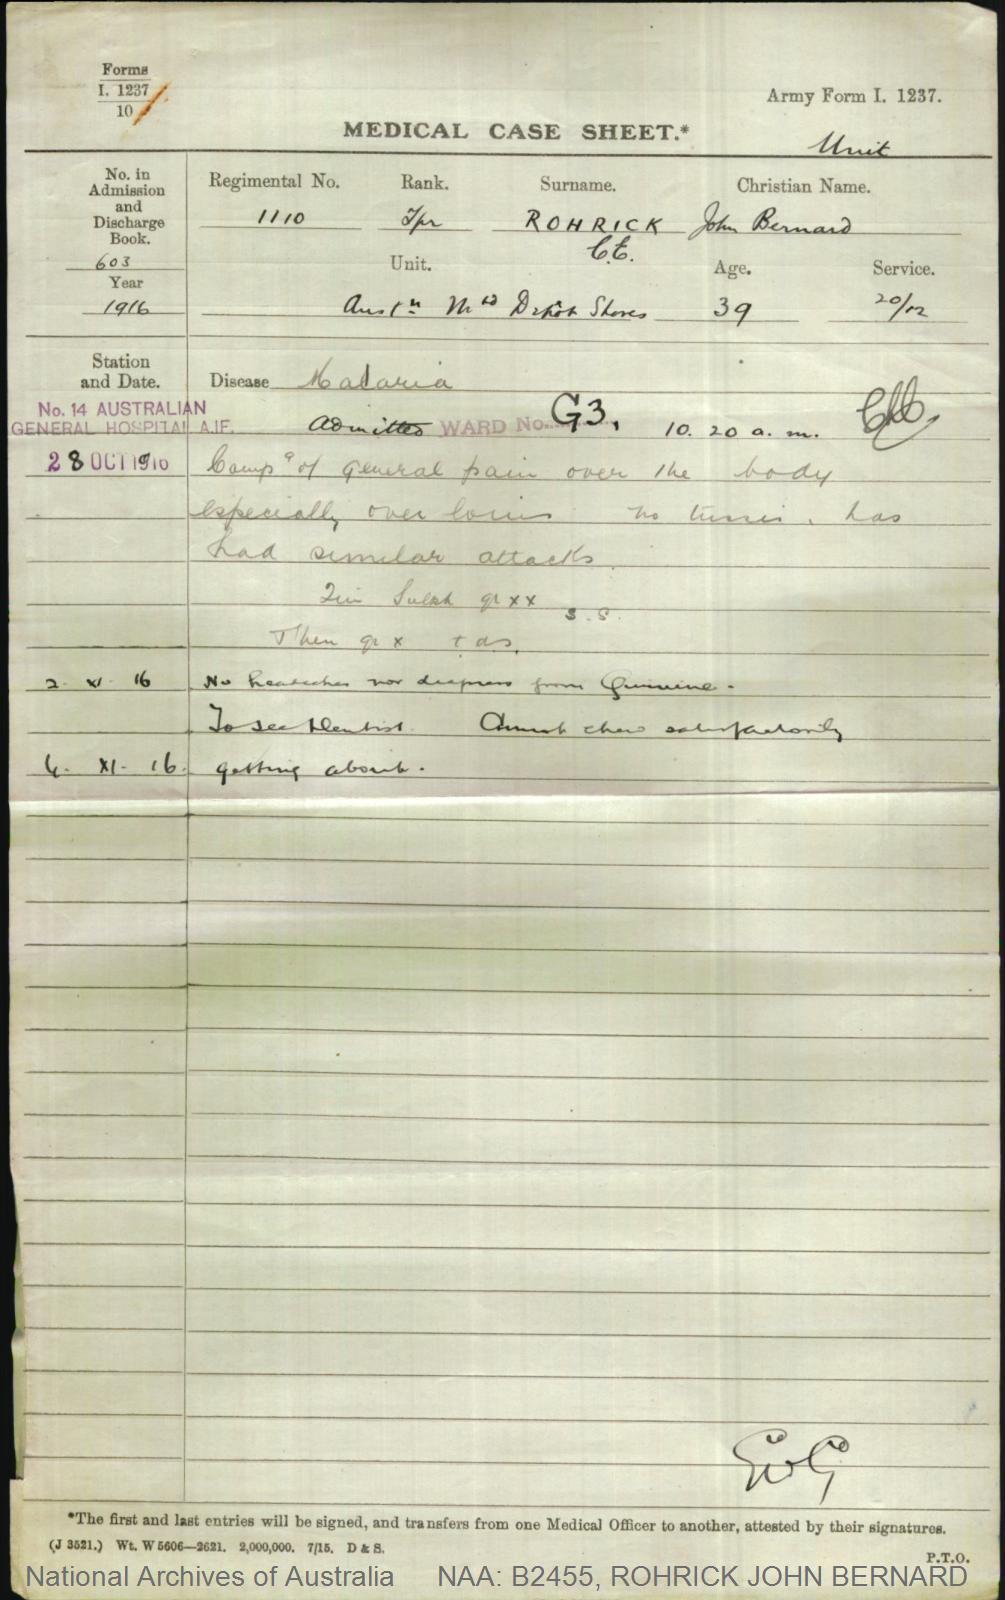 Forms
I. 1237
10
Army Form I. 1237.
MEDICAL CASE SHEET.*
Unit
No. in Admission and Discharge Book.
603
Year
1916
Regimental No. Rank. Surname. Christian Name.
1110 Tpr ROHRICK John Bernard
C.E.
Unit. Age. Service.
Austn Md Depot Stores 39 20/12
Station and Date.
Disease Malaria
No. 14 AUSTRALIAN
GENERAL HOSPITAL A.I.F.
Admitted WARD No. G3. 10.20 a.m.
28 OCT 1916
Compg of general pain over the body
especially over loins no tussis. has
had similar attacks.
Quin Sulph gr xx
s.s.
Then gr x t ds.
2. XI. 16 No headaches nor deafness from Quinine.
To see Dentist. Cannot chew satisfactorily
6. XI. 16. getting about.
*The first and last entries will be signed, and transfers from one Medical Officer to another, attested by their signatures.
(J 3521.) Wt. W5606—2621. 2,000,000. 7/15. D & S.
P.T.O.
National Archives of Australia NAA: B2455, ROHRICK JOHN BERNARD